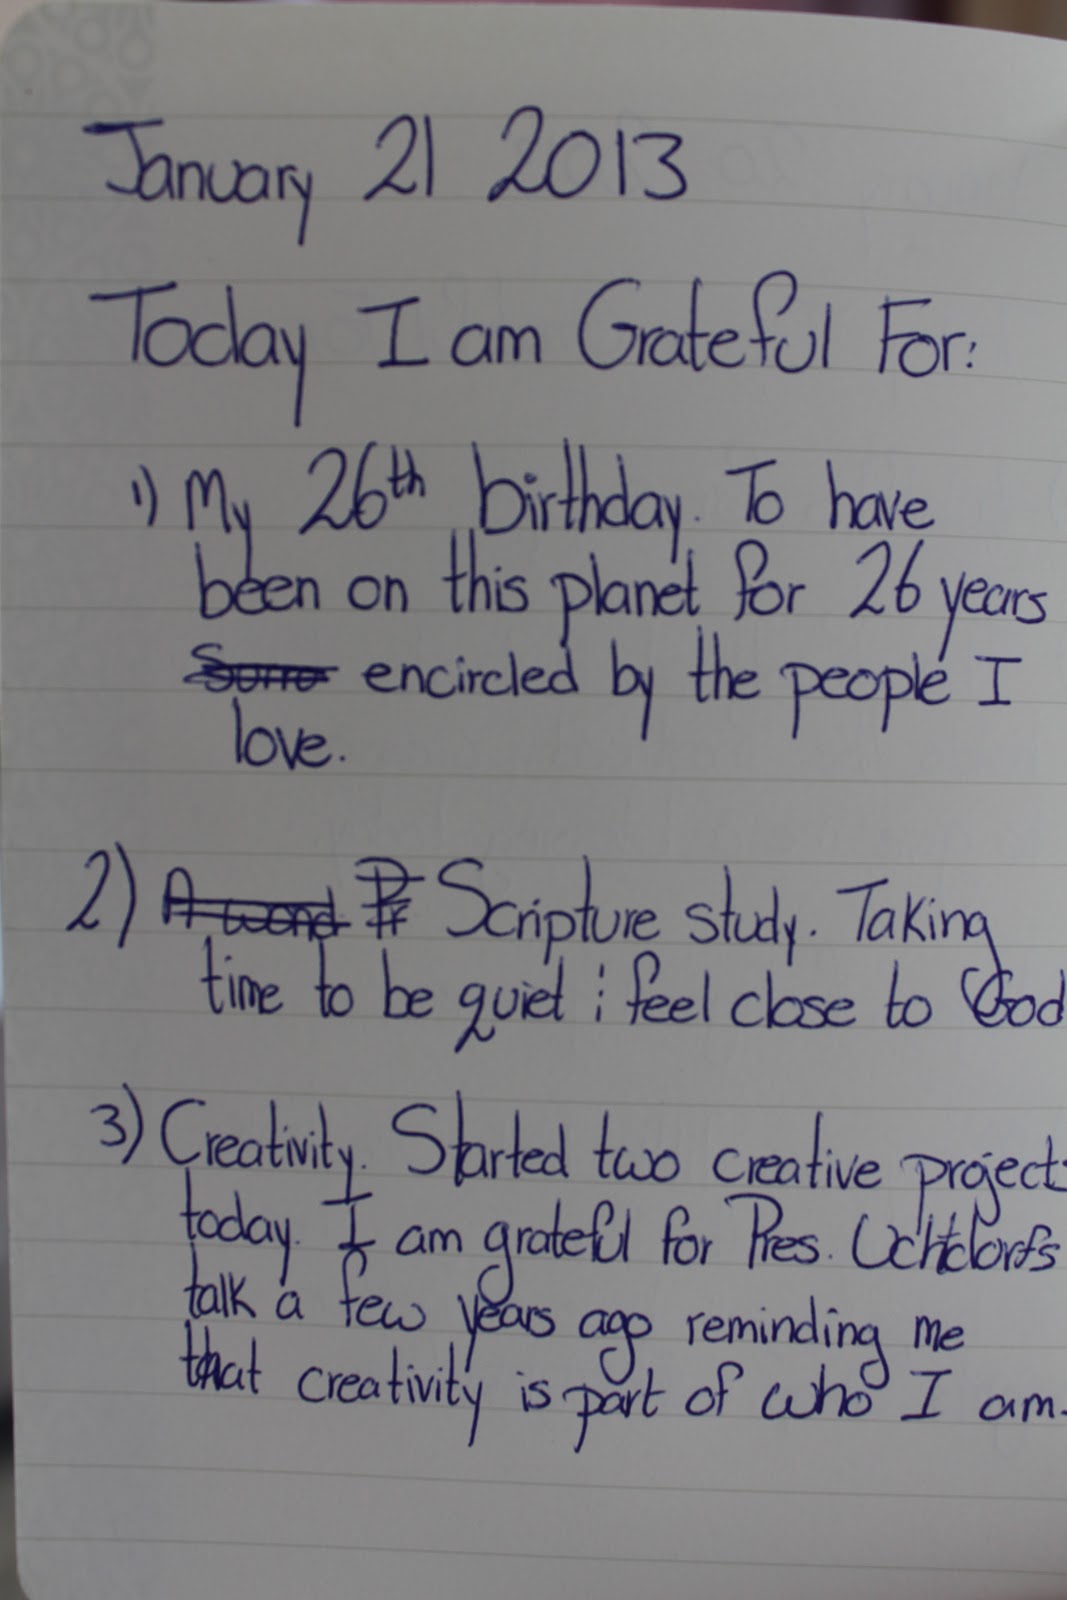 January 21 2013
Today I am Grateful For:
1) My 26th birthday. To have
been on this planet for 26 years
encircled by the people I
love.
2) Scripture study. Taking
time to be quiet i feel close to God
3) Creativity. Started two creative project
today. I am grateful for Pres. Uchtdorfs
talk a few years ago reminding me
that creativity is part of who I am.